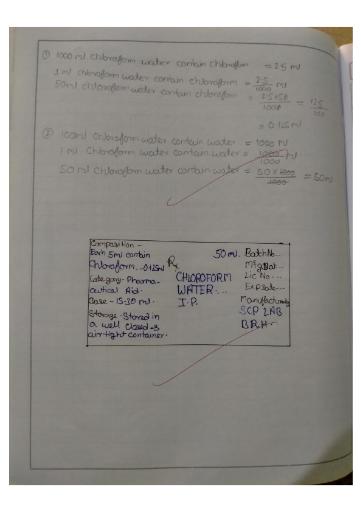 ① 1000 ml Chloroform water contain chloroform = 2.5 ml
1 ml chloroform water contain chloroform = 2.5/1000 ml
50ml chloroform water contain chloroform = 2.5×50/1000 = 12.5/100
= 0.125 ml
② 1000ml Chloroform water contain water = 1000 ml
1 ml Chloroform water contain water = 1000/1000 ml
50 ml Chloroform water contain water = 50×1000/1000 = 50ml
Composition -
Each 5ml contain
Chloroform. -0.125ml
Category- Pharma-
ceutical Aid.
Dose - 15-30 ml.
Storage- Stored in
a well closed &
air tight container.
Rx
50 ml.
CHLOROFORM
WATER...
I.P.
Batch No...
Mfg Dat...
Lic No...
Exp date...
Manufactured by
SCP LAB
B.R.H-